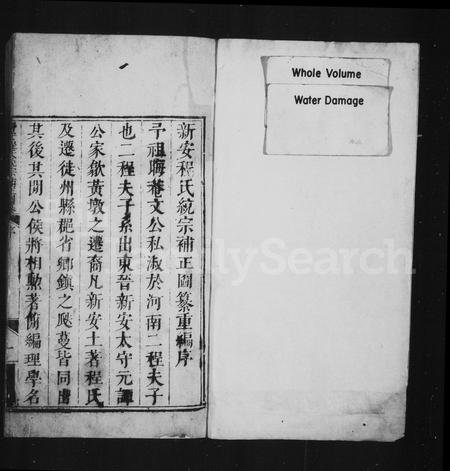 新安程氏統宗補正圖纂重編序
予祖晦菴文公私淑於河南二程夫子
也二程夫子系出東晉新安太守元譚
公家歙黄墩之遷裔凡新安土著程氏
及遷徙州縣郡省鄉鎮之瓞蔓皆同
其後其開公侯將相勲著簡編理學名
Whole Volume
Water Damage
FamilySearch